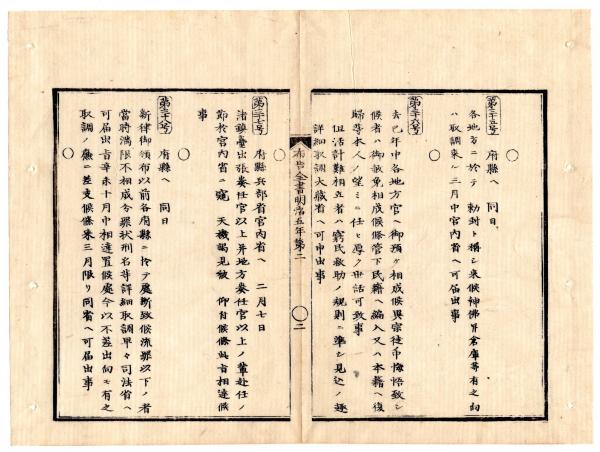 第三十五号
府縣ヘ 同日
各地方ニ於テ 勅封ト稱シ来候神佛并倉庫等有之向
ハ取調来ル三月中宮内省ヘ可届出事
第三十六号
去巳年中各地方官ヘ御預ケ相成候異宗徒 悔悟致シ
候者ハ御赦免相成候條管下民籍ヘ編入又ハ本籍ヘ復
歸等本人ノ望ミニ任セ厚ク世話可致事
但活計難相立者ハ窮民救助ノ規則ニ準シ見込ノ趣
詳細取調大蔵省ヘ可申出事
布告全書明治五年第二
二
第三十七号
府縣兵部省宮内省ヘ 二月七日
諸鎮臺出張奏任官以上并地方奏任官以上ノ輩赴任ノ
節於宮内省ニ窺 天機謁見被 仰付候條此旨相達候
事
第三十八号
府縣ヘ 同日
新律御頒布以前各府縣ニ於テ處断致候流罪以下ノ者
當時満限不相成分罪状刑名等詳細取調早々司法省ヘ
可届出旨辛未十月中相達置候處今以不差出向モ有之
取調ノ廉ニ差支候條来三月限リ同省ヘ可届出事